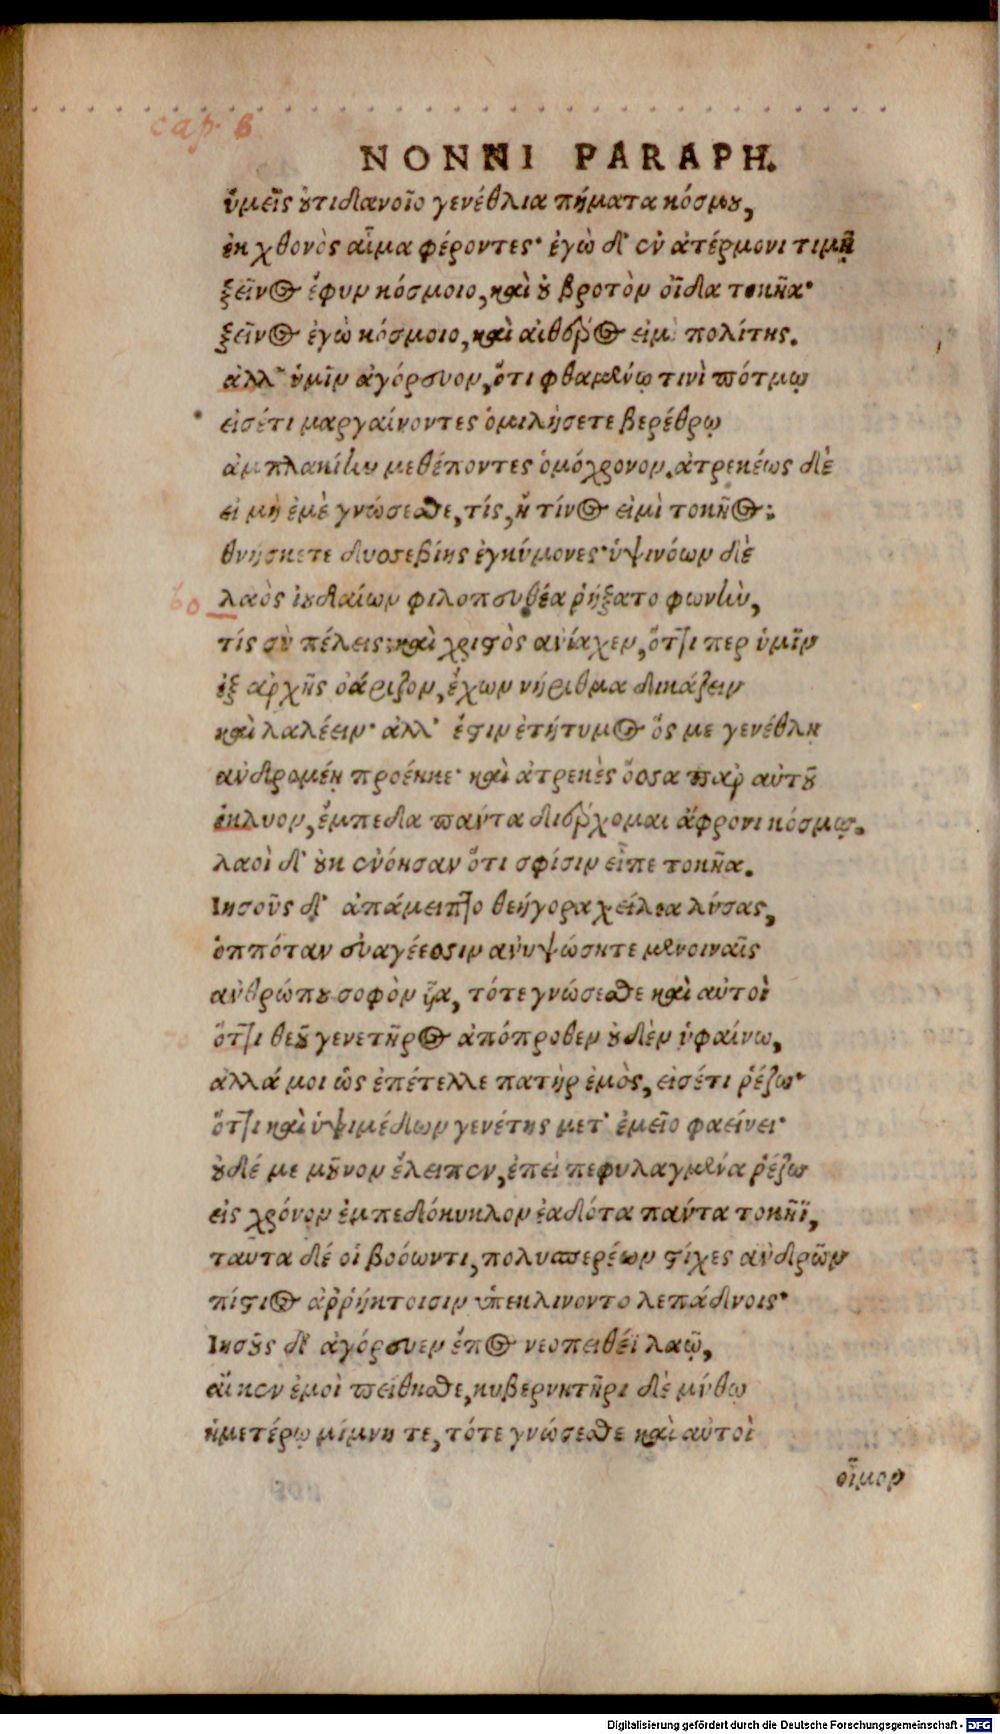 cap. 8
NONNI PARAPH.
ὑμεῖς οὐτιδανοῖο γενέθλια πήματα κόσμου,
ἐκ χθονὸς αἷμα φέροντες· ἐγὼ δ' ἐν ἀτέρμονι τιμῇ
ξεῖνος ἔφυν κόσμοιο, καὶ οὐ βροτὸν οἶδα τοκῆα·
ξεῖνος ἐγὼ κόσμοιο, καὶ αἰθέρος εἰμὶ πολίτης.
ἀλλ' ὑμῖν ἀγόρευον, ὅτι φθαμένῳ τινὶ πότμῳ
εἰσέτι μαργαίνοντες ὁμιλήσετε βερέθρῳ
ἀμπλακίην μεθέποντες ὁμόχρονον. ἀτρεκέως δὲ
εἰ μὴ ἐμὲ γνώσεσθε, τίς, ἢ τίνος εἰμὶ τοκῆος;
θνήσκετε δυσσεβίης ἐγκύμονες· ὑψινόων δὲ
60
λαὸς ἰουδαίων φιλοπευθέα ῥήξατο φωνὴν,
τίς σὺ πέλεις; καὶ χριστὸς ἀνίαχεν, ὅττι περ ὑμῖν
ἐξ ἀρχῆς ὀάριζον, ἔχων νήριθμα δικάζειν
καὶ λαλέειν· ἀλλ' ἔστιν ἐτήτυμος ὅς με γενέθλῃ
ἀνδρομέῃ προέηκε· καὶ ἀτρεκὲς ὅσσα παρ αὐτοῦ
ἔκλυον, ἔμπεδα πάντα διέρχομαι ἄφρονι κόσμῳ.
λαοὶ δ' οὐκ ἐνόησαν ὅτι σφίσιν εἶπε τοκῆα.
Ιησοῦς δ' ἀπάμειπτο θεήγορα χείλεα λύσας,
ὁππόταν εὐαγέεσσιν ἀνυψώσητε μενοιναῖς
ἀνθρώπου σοφὸν υἷα, τότε γνώσεσθε καὶ αὐτοὶ
70
ὅττι θεοῦ γενετῆρος ἀπόπροθεν οὐδὲν ὑφαίνω,
ἀλλά μοι ὡς ἐπέτελλε πατὴρ ἐμὸς, εἰσέτι ῥέζω·
ὅττι καὶ ὑψιμέδων γενέτης μετ' ἐμεῖο φαείνει·
οὐδέ με μοῦνον ἔλειπεν, ἐπεὶ πεφυλαγμένα ῥέζω
εἰς χρόνον ἐμπεδόκυκλον ἑαδότα πάντα τοκῆϊ,
ταῦτα δέ οἱ βοόωντι, πολυσπερέων στίχες ἀνδρῶν
πίστιος ἀῤῥήκτοισιν ὑπεκλίνοντο λεπάδνοις·
Ιησοῦς δ' ἀγόρευεν ἔπος νεοπειθέϊ λαῷ,
αἴ κεν ἐμοὶ πείθησθε, κυβερνητῆρι δὲ μύθῳ
ἡμετέρῳ μίμνητε, τότε γνώσεσθε καὶ αὐτοὶ
οἶμον
Digitalisierung gefördert durch die Deutsche Forschungsgemeinschaft - DFG